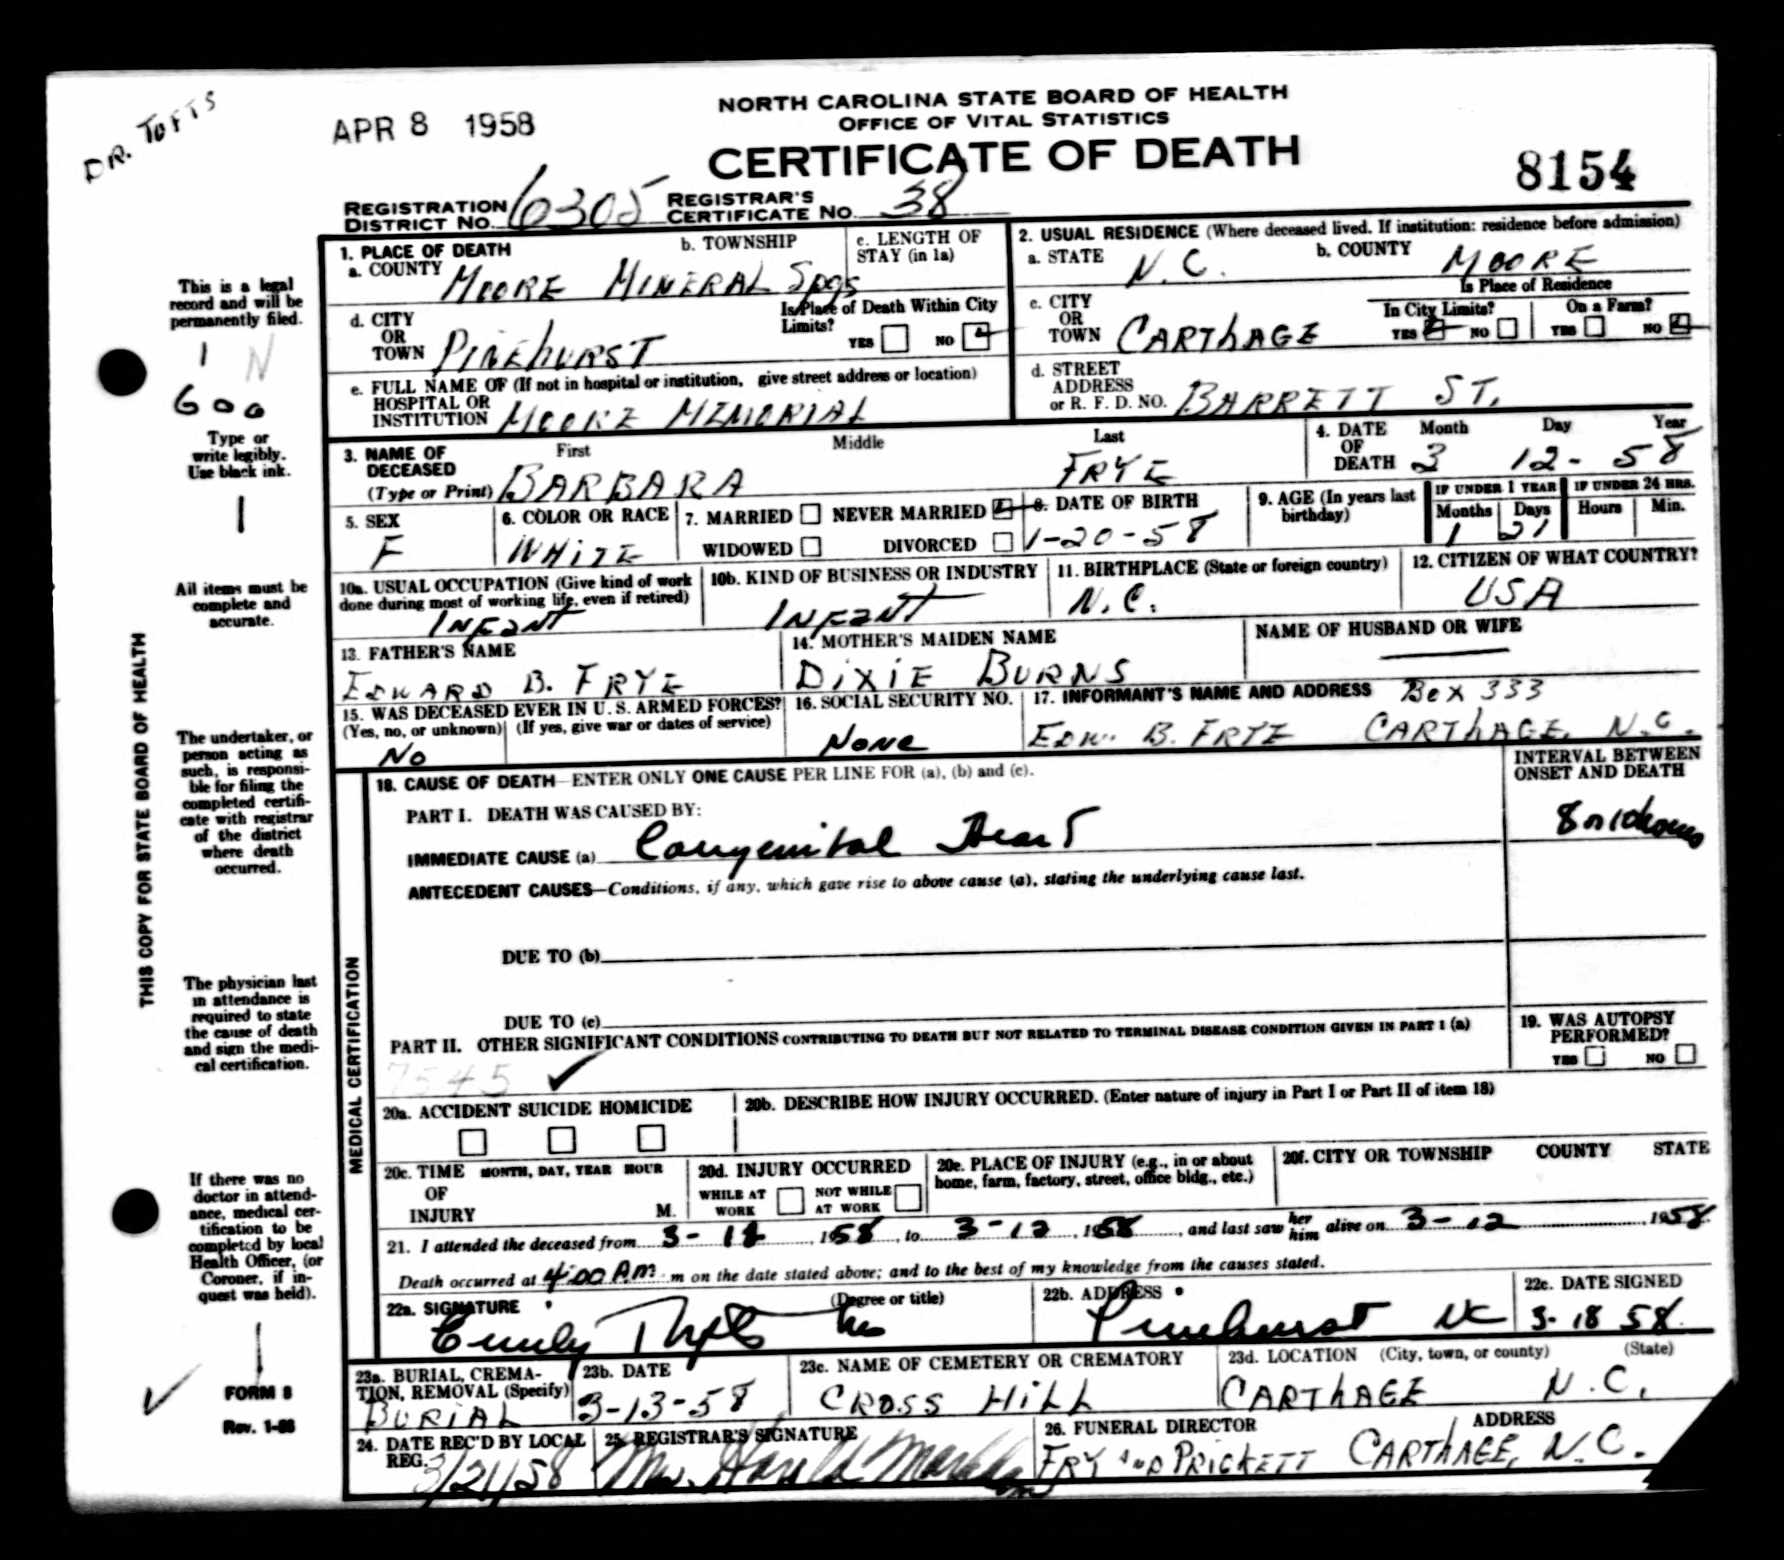 DR. TOFTS
APR 8 1958
NORTH CAROLINA STATE BOARD OF HEALTH
OFFICE OF VITAL STATISTICS
CERTIFICATE OF DEATH
8154
REGISTRATION DISTRICT NO. 6305 REGISTRAR'S CERTIFICATE NO. 38
1. PLACE OF DEATH
a. COUNTY MOORE
b. TOWNSHIP MINERAL Spgs
c. LENGTH OF STAY (in 1a)
d. CITY OR TOWN PINEHURST
Is Place of Death Within City Limits? YES NO
e. FULL NAME OF (If not in hospital or institution, give street address or location)
HOSPITAL OR INSTITUTION MOORE MEMORIAL
2. USUAL RESIDENCE (Where deceased lived. If institution: residence before admission)
a. STATE N.C.
b. COUNTY MOORE
c. CITY OR TOWN CARTHAGE
Is Place of Residence
In City Limits? YES NO
On a Farm? YES NO
d. STREET ADDRESS or R. F. D. NO. BARRETT ST.
3. NAME OF DECEASED (Type or Print)
First BARBARA Middle Last FRYE
4. DATE OF DEATH Month Day Year 3 12- 58
5. SEX F
6. COLOR OR RACE WHITE
7. MARRIED NEVER MARRIED
WIDOWED DIVORCED
8. DATE OF BIRTH 1-20-58
9. AGE (In years last birthday)
IF UNDER 1 YEAR Months 1 Days 21
IF UNDER 24 HRS. Hours Min.
10a. USUAL OCCUPATION (Give kind of work done during most of working life, even if retired) INFANT
10b. KIND OF BUSINESS OR INDUSTRY INFANT
11. BIRTHPLACE (State or foreign country) N.C.
12. CITIZEN OF WHAT COUNTRY? USA
13. FATHER'S NAME EDWARD B. FRYE
14. MOTHER'S MAIDEN NAME DIXIE BURNS
NAME OF HUSBAND OR WIFE
15. WAS DECEASED EVER IN U. S. ARMED FORCES?
(Yes, no, or unknown) (If yes, give war or dates of service)
No
16. SOCIAL SECURITY NO. None
17. INFORMANT'S NAME AND ADDRESS Box 333
EDW. B. FRYE CARTHAGE, N.C.
MEDICAL CERTIFICATION
18. CAUSE OF DEATH—ENTER ONLY ONE CAUSE PER LINE FOR (a), (b) and (c).
INTERVAL BETWEEN ONSET AND DEATH
PART I. DEATH WAS CAUSED BY:
IMMEDIATE CAUSE (a) Congenital Heart
ANTECEDENT CAUSES—Conditions, if any, which gave rise to above cause (a), stating the underlying cause last.
DUE TO (b)
DUE TO (c)
PART II. OTHER SIGNIFICANT CONDITIONS CONTRIBUTING TO DEATH BUT NOT RELATED TO TERMINAL DISEASE CONDITION GIVEN IN PART 1 (a)
7545 ✓
19. WAS AUTOPSY PERFORMED?
YES NO
20a. ACCIDENT SUICIDE HOMICIDE
20b. DESCRIBE HOW INJURY OCCURRED. (Enter nature of injury in Part I or Part II of item 18)
20c. TIME OF INJURY MONTH, DAY, YEAR HOUR M.
20d. INJURY OCCURRED
WHILE AT WORK NOT WHILE AT WORK
20e. PLACE OF INJURY (e.g., in or about home, farm, factory, street, office bldg., etc.)
20f. CITY OR TOWNSHIP COUNTY STATE
21. I attended the deceased from 3-12, 1958, to 3-12, 1958, and last saw her him alive on 3-12 1958.
Death occurred at 4:00 A.M. m on the date stated above; and to the best of my knowledge from the causes stated.
22a. SIGNATURE (Degree or title)
Emily Tufts MD
22b. ADDRESS Pinehurst NC
22c. DATE SIGNED 3-18 58.
23a. BURIAL, CREMATION, REMOVAL (Specify) BURIAL
23b. DATE 3-13-58
23c. NAME OF CEMETERY OR CREMATORY CROSS HILL
23d. LOCATION (City, town, or county) (State)
CARTHAGE N.C.
24. DATE REC'D BY LOCAL REG. 3/21/58
25. REGISTRAR'S SIGNATURE Mrs. Harold
26. FUNERAL DIRECTOR ADDRESS
FRY AND PRICKETT CARTHAGE, N.C.
THIS COPY FOR STATE BOARD OF HEALTH
This is a legal
record and will be
permanently filed.
1 N
600
Type or
write legibly.
Use black ink.
All items must be
complete and
accurate.
The undertaker, or
person acting as
such, is responsi-
ble for filing the
completed certifi-
cate with registrar
of the district
where death
occurred.
The physician last
in attendance is
required to state
the cause of death
and sign the medi-
cal certification.
If there was no
doctor in attend-
ance, medical cer-
tification to be
completed by local
Health Officer, (or
Coroner, if in-
quest was held).
✓
FORM 8